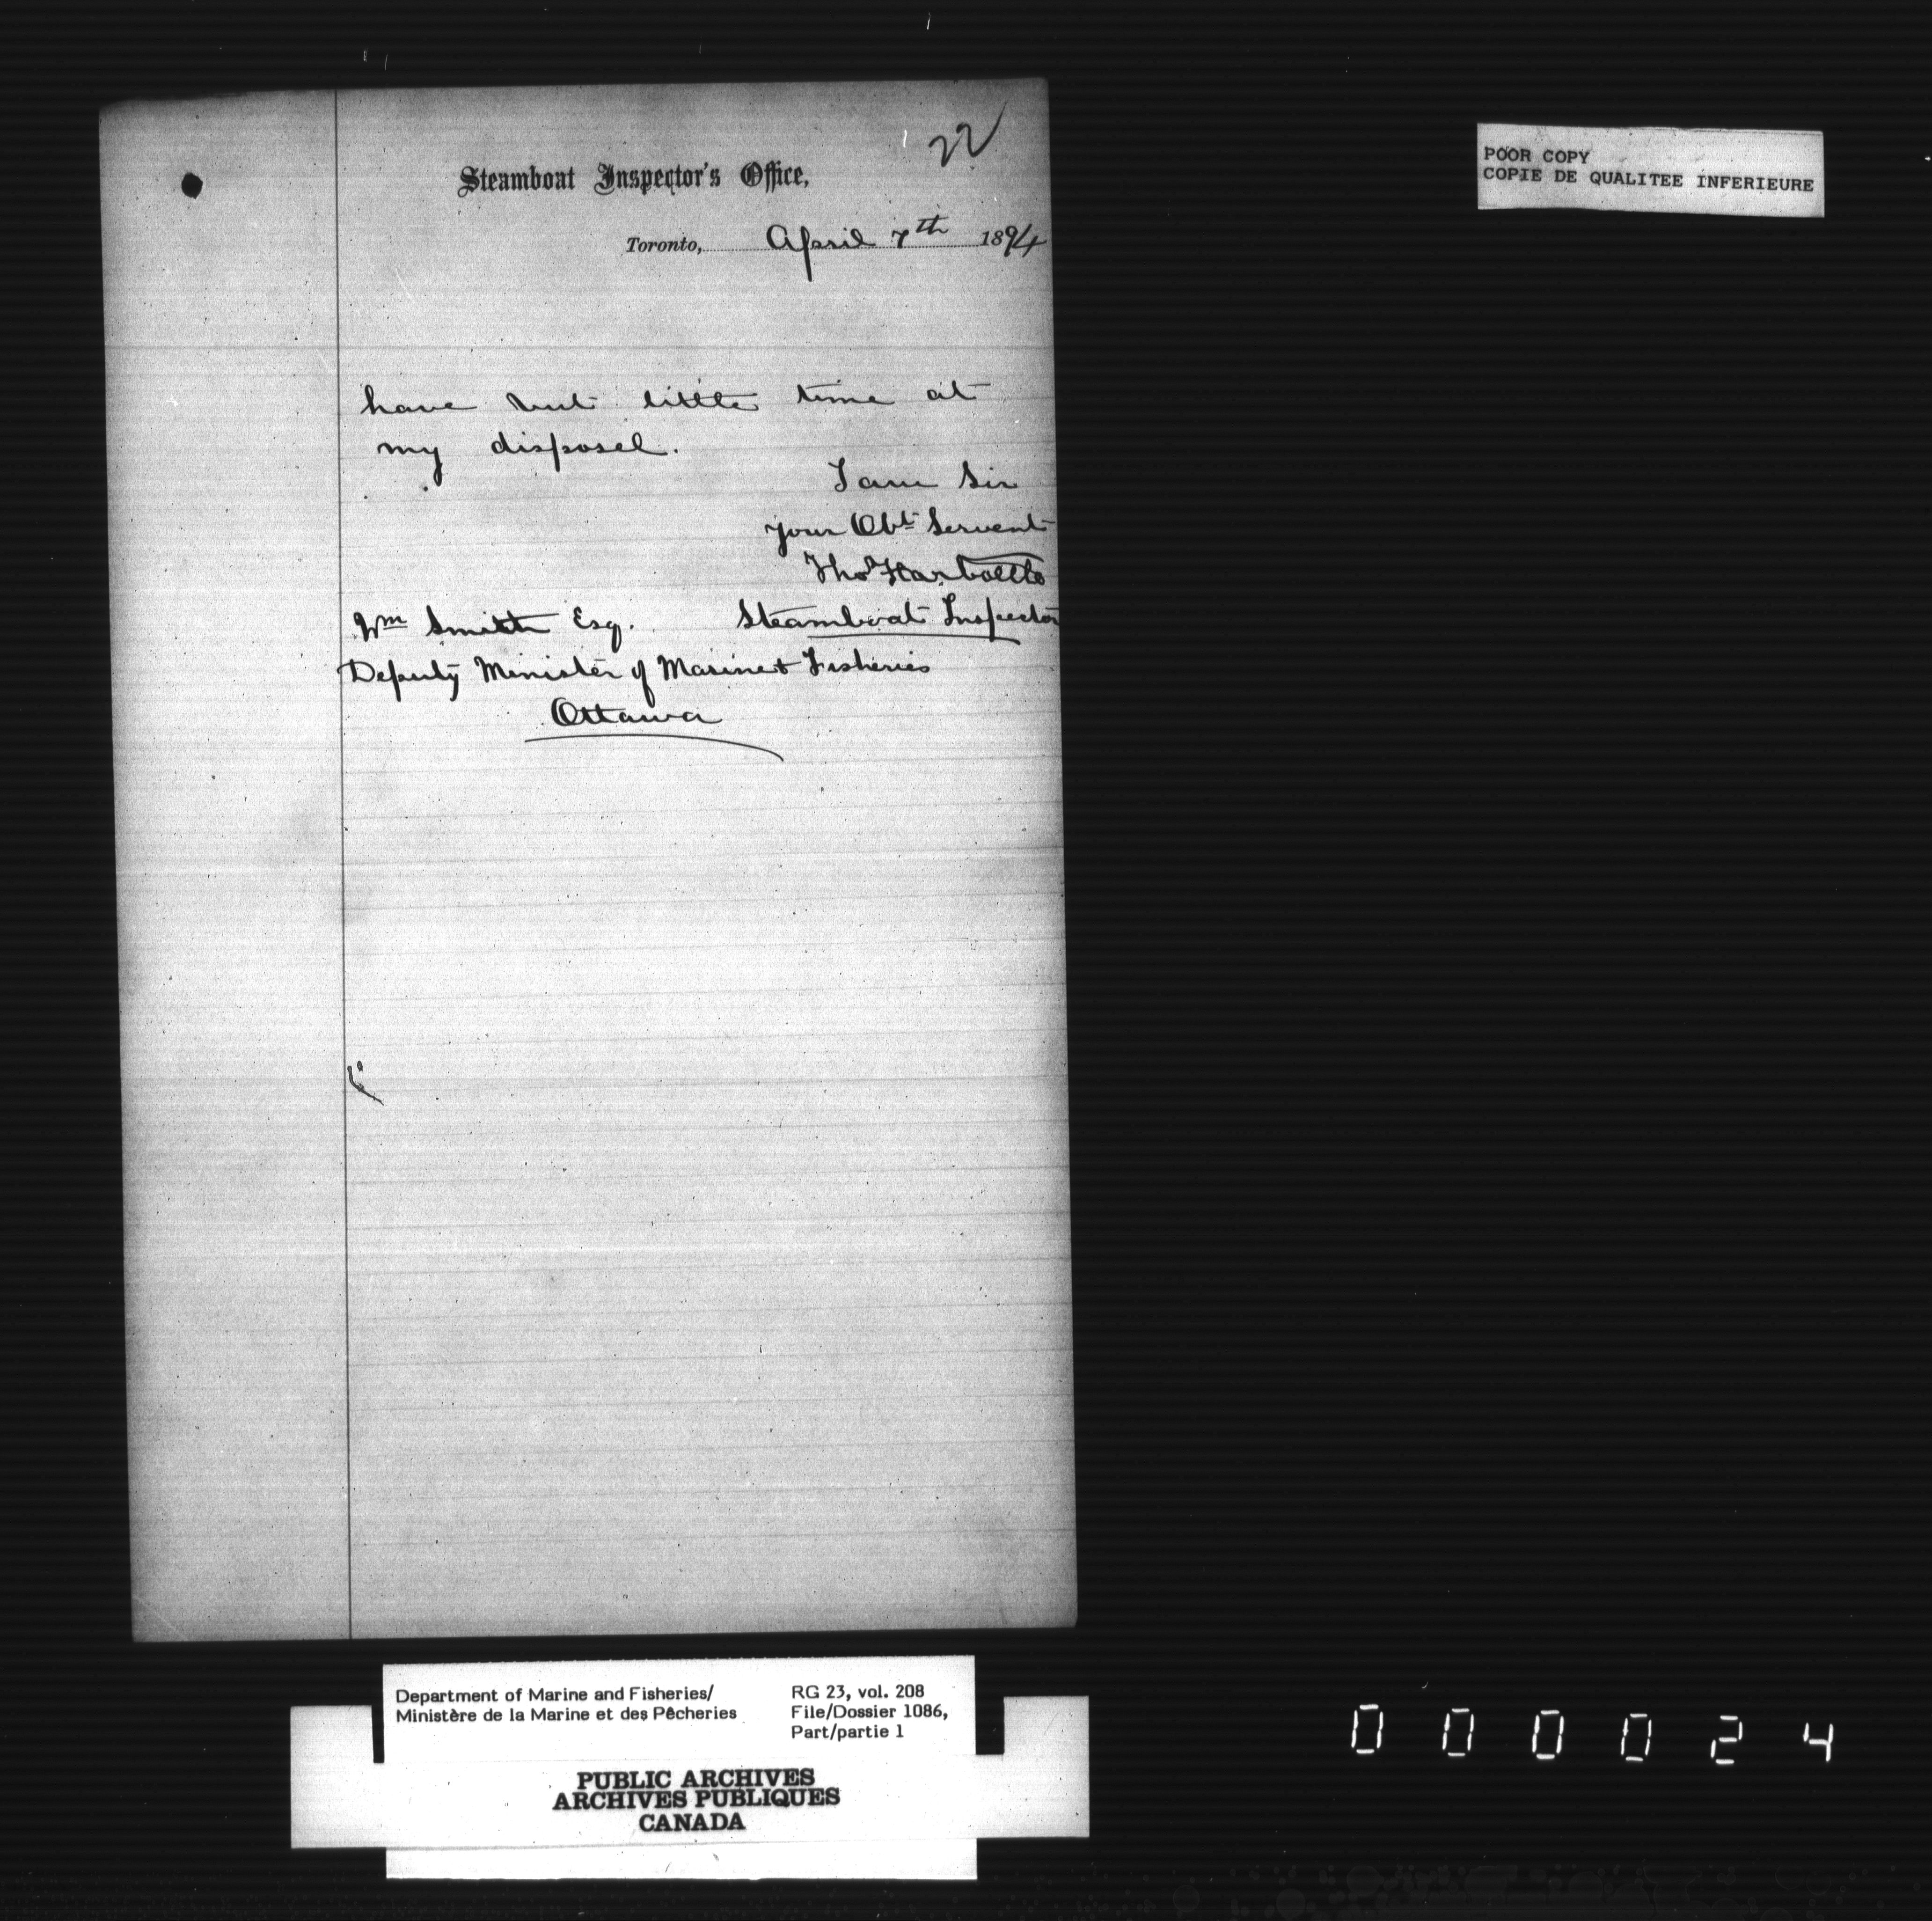 22
Steamboat Inspector's Office,
Toronto, April 7th 1894
have but little time at
my disposel.
I am Sir
your Obt Servent
Thos Harbottle
Steamboat Inspector
Wm Smith Esq.
Deputy Minister of Marine & Fisheries
Ottawa
POOR COPY
COPIE DE QUALITEE INFERIEURE
Department of Marine and Fisheries/
Ministère de la Marine et des Pêcheries
RG 23, vol. 208
File/Dossier 1086,
Part/partie 1
PUBLIC ARCHIVES
ARCHIVES PUBLIQUES
CANADA
000024